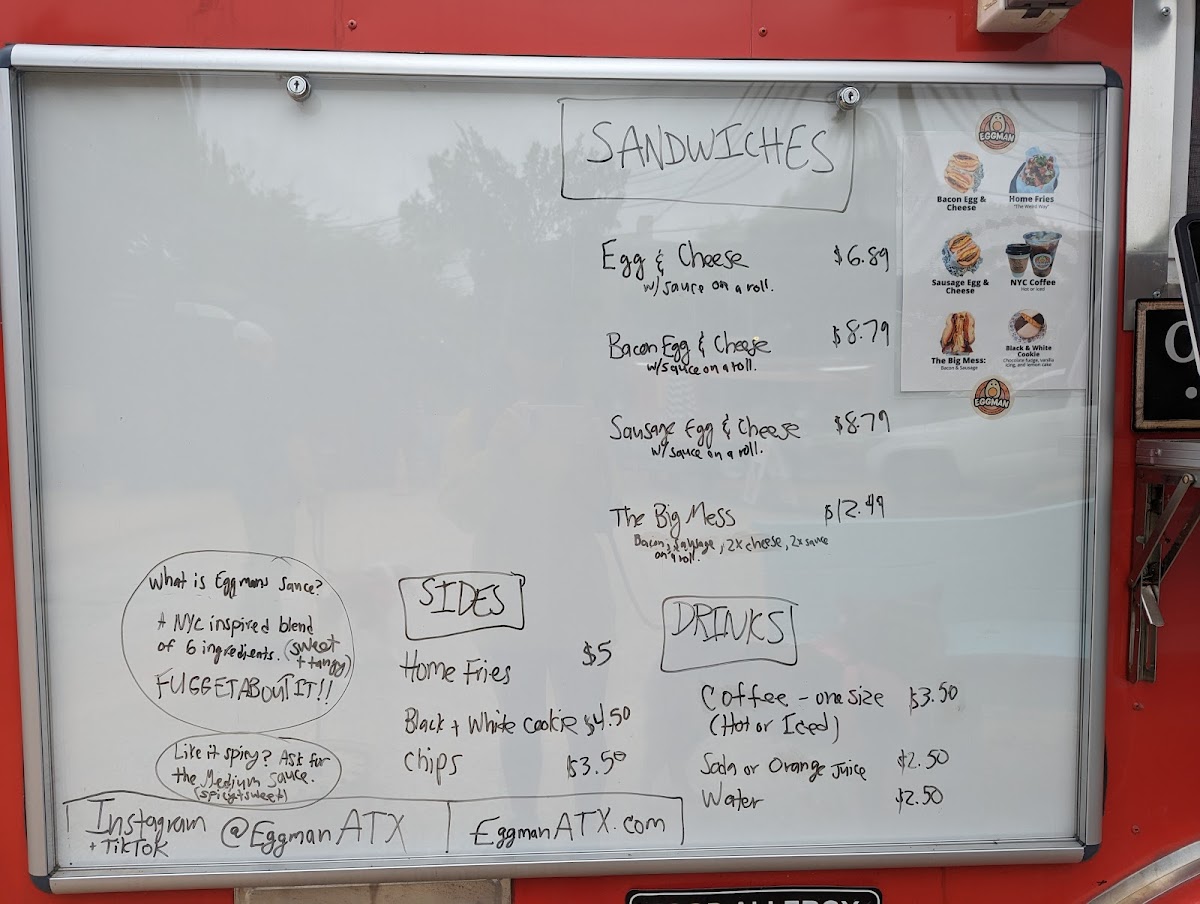 SANDWICHES
Egg & Cheese $6.89
w/ sauce on a roll.
Bacon Egg & Cheese $8.79
w/ sauce on a roll.
Sausage Egg & Cheese $8.79
w/ sauce on a roll.
The Big Mess $12.49
Bacon, sausage, 2x cheese, 2x sauce
on a roll.
EGGMAN
Bacon Egg &
Cheese
Home Fries
"The Weird Way"
Sausage Egg &
Cheese
NYC Coffee
Hot or Iced
The Big Mess:
Bacon & Sausage
Black & White
Cookie
Chocolate fudge, vanilla
icing, and lemon cake.
EGGMAN
What is Eggmans sauce?
A NYC inspired blend
of 6 ingredients. (sweet
+ tangy)
FUGGETABOUTIT!!
Like it spicy? Ask for
the Medium sauce.
(spicy+sweet)
SIDES
Home Fries $5
Black + White cookie $4.50
chips $3.50
DRINKS
Coffee - one size $3.50
(Hot or Iced)
Soda or Orange Juice $2.50
Water $2.50
Instagram @EggmanATX
+ TikTok
EggmanATX.com
ALLERGY